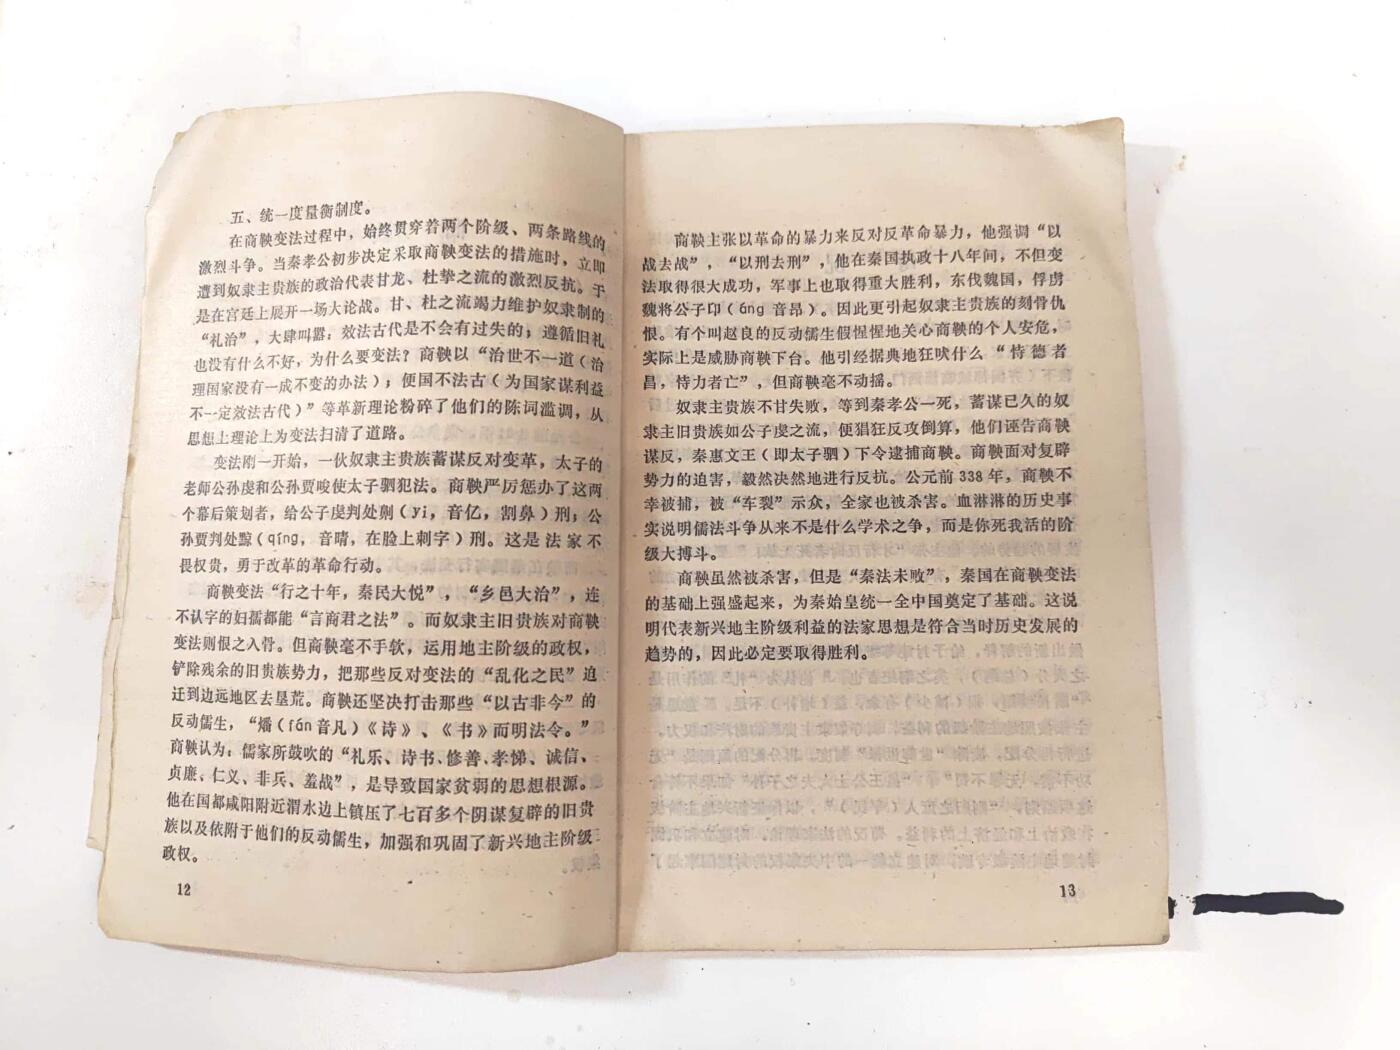 五、统一度量衡制度。
在商鞅变法过程中，始终贯穿着两个阶级、两条路线的
激烈斗争。当秦孝公初步决定采取商鞅变法的措施时，立即
遭到奴隶主贵族的政治代表甘龙、杜挚之流的激烈反抗。于
是在宫廷上展开一场大论战。甘、杜之流竭力维护奴隶制的
“礼治”，大肆叫嚣：效法古代是不会有过失的；遵循旧礼
也没有什么不好，为什么要变法？商鞅以“治世不一道（治
理国家没有一成不变的办法）；便国不法古（为国家谋利益
不一定效法古代）”等革新理论粉碎了他们的陈词滥调，从
思想上理论上为变法扫清了道路。
变法刚一开始，一伙奴隶主贵族蓄谋反对变革，太子的
老师公孙虔和公孙贾唆使太子驷犯法。商鞅严厉惩办了这两
个幕后策划者，给公子虔判处劓（yi，音亿，割鼻）刑；公
孙贾判处黥（qíng，音晴，在脸上刺字）刑。这是法家不
畏权贵，勇于改革的革命行动。
商鞅变法“行之十年，秦民大悦”，“乡邑大治”，连
不认字的妇孺都能“言商君之法”。而奴隶主旧贵族对商鞅
变法则恨之入骨。但商鞅毫不手软，运用地主阶级的政权，
铲除残余的旧贵族势力，把那些反对变法的“乱化之民”迫
迁到边远地区去垦荒。商鞅还坚决打击那些“以古非今”的
反动儒生，“燔（fán音凡）《诗》、《书》而明法令。”
商鞅认为：儒家所鼓吹的“礼乐、诗书、修善、孝悌、诚信、
贞廉、仁义、非兵、羞战”，是导致国家贫弱的思想根源。
他在国都咸阳附近渭水边上镇压了七百多个阴谋复辟的旧贵
族以及依附于他们的反动儒生，加强和巩固了新兴地主阶级
政权。
12
商鞅主张以革命的暴力来反对反革命暴力，他强调“以
战去战”，“以刑去刑”，他在秦国执政十八年间，不但变
法取得很大成功，军事上也取得重大胜利，东伐魏国，俘虏
魏将公子卬（áng 音昂）。因此更引起奴隶主贵族的刻骨仇
恨。有个叫赵良的反动儒生假惺惺地关心商鞅的个人安危，
实际上是威胁商鞅下台。他引经据典地狂吠什么“恃德者
昌，恃力者亡”，但商鞅毫不动摇。
奴隶主贵族不甘失败，等到秦孝公一死，蓄谋已久的奴
隶主旧贵族如公子虔之流，便猖狂反攻倒算，他们诬告商鞅
谋反，秦惠文王（即太子驷）下令逮捕商鞅。商鞅面对复辟
势力的迫害，毅然决然地进行反抗。公元前338年，商鞅不
幸被捕，被“车裂”示众，全家也被杀害。血淋淋的历史事
实说明儒法斗争从来不是什么学术之争，而是你死我活的阶
级大搏斗。
商鞅虽然被杀害，但是“秦法未败”，秦国在商鞅变法
的基础上强盛起来，为秦始皇统一全中国奠定了基础。这说
明代表新兴地主阶级利益的法家思想是符合当时历史发展的
趋势的，因此必定要取得胜利。
13